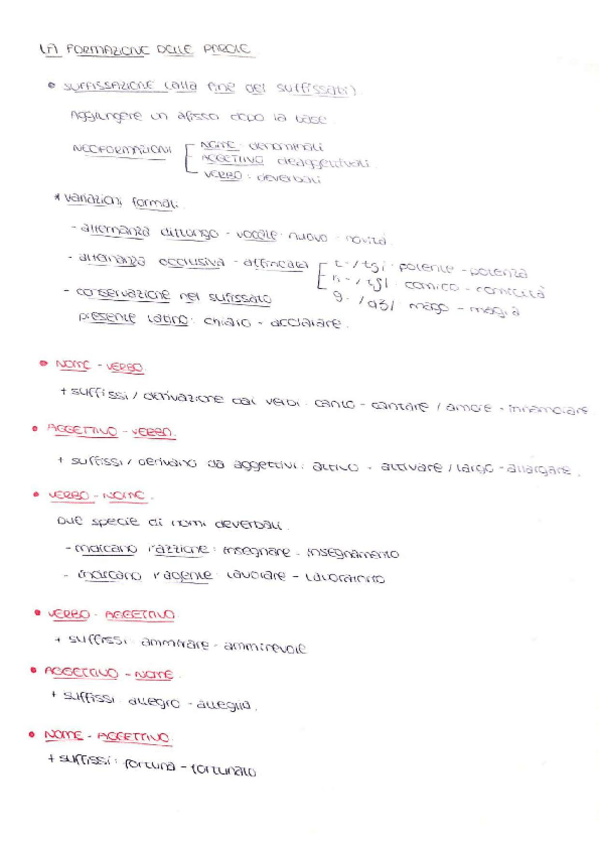 LA FORMAZIONE DELLE PAROLE
• SUFFISSAZIONE (alla fine dei suffissati)
Aggiungere un afisso dopo la base.
NEOFORMAZIONI
NOME: denominali
AGGETTIVO: deaggettivali
VERBO: deverbali
* variazioni formali
- alternanza dittongo - vocale: nuovo - novità
- alternanza occlusiva - affricata
potente - potenza
comico - comicità
mago - magia
- conservazione nel suffissato
presente latino: chiaro - acclarare.
• NOME - VERBO.
+ suffissi / derivazione dai verbi: canto - cantare / amore - innamorare
• AGGETTIVO - VERBO.
+ suffissi / derivano da aggettivi: attivo - attivare / largo - allargare.
• VERBO - NOME.
Due specie di nomi deverbali.
- marcano l'azzione: insegnare - insegnamento
- marcano l'agente: lavorare -
• VERBO - AGGETTIVO.
+ suffissi: ammirare - ammirevole
• AGGETTIVO - NOME.
+ suffissi: allegro - allegria.
• NOME - AGGETTIVO.
+ suffissi: fortuna - fortunato